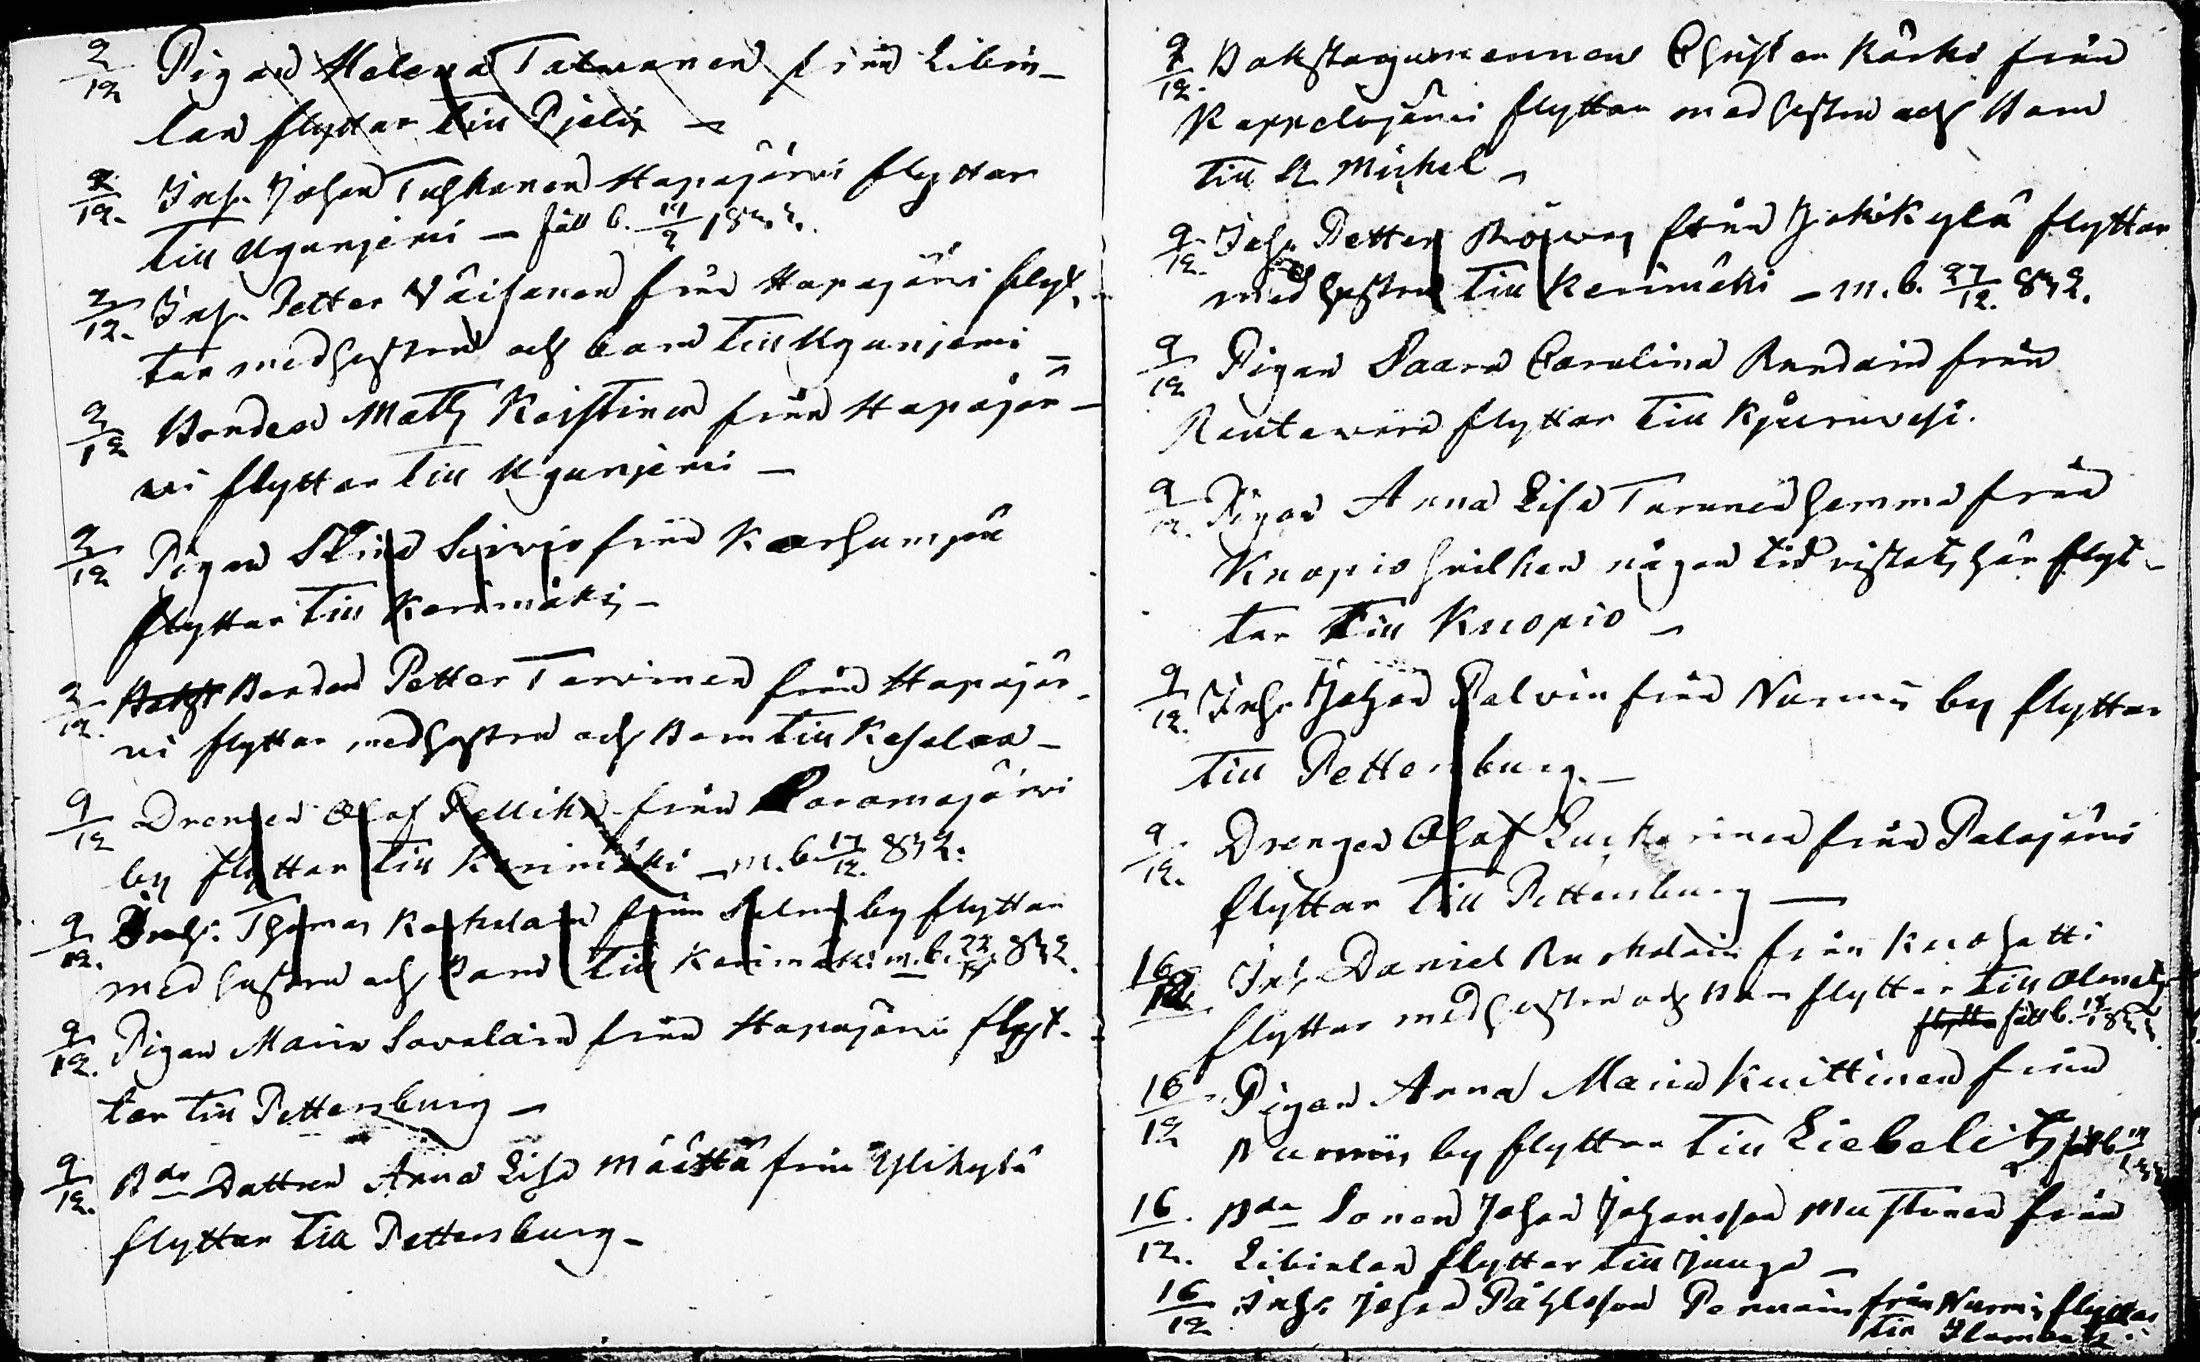 9/12 Pigan Helena Tatunen från Libin-
lan flyttar till Pjelis –
9/12. Inh. Johan Tuhkanen Hapajärvi flyttar
till Uguniemi –
9/12. Inh. Petter Väisanen från Hapajärvi flyt-
tar med hustru och barn till Uguniemi –
9/12 Bonden Matts Koistinen från Hapajär-
vi flyttar till Uguniemi –
9/12 Pigan från
flyttar till Kerimäki –
9/12. Bonden Petter Tarvinen från Hapajär-
vi flyttar med hustru och Barn till Kesälax –
9/12 Drengen Olof Pellikain från Paramajärvi
by flyttar till Kerimäki – m. b. 17/12. 832.
9/12. Inh. Thomas från by flyttar
med hustru och Barn till Kerimäki m. b. 832.
9/12. Pigan Maria Savolain från Hapajärvi flyt-
tar till Pettersburg –
9/12. Bde Dottren Anna Lisa Määttä från Ylikylä
flyttar till Pettersburg –
9/12. Backstugumannen Christer Kärki från
flyttar med hustru och Barn
till St Michel –
9/12. Inh. Petter från Jokikylä flyttar
med hustru till Kerimäki – m. b. 27/12. 832.
9/12 Pigan Paara Carolina från
Rautavara flyttar till Kjuruvesi.
9/12. Pigan Anna Lisa Turunen hemma från
Kuopio hvilken någon tid vistats här flyt-
tar till Kuopio –
9/12. Inh. Johan Palvin från Nurmis by flyttar
till Pettersburg –
9/12. Drengen Olof från Palojärvi
flyttar till Pettersburg –
16/12 Inh. Daniel från Kuohatti
flyttar med hustru och Barn flyttar till
flyttar
16/12 Pigan Anna Maria Kuittinen från
Nurmis by flyttar till Liebelits
16/12. Bde Sonen Johan Johansson Mustonen från
Libinlan flyttar till Juuga –
16/12 Inh. Johan Påhlsson från Nurmis flyttar
till Ilomants.